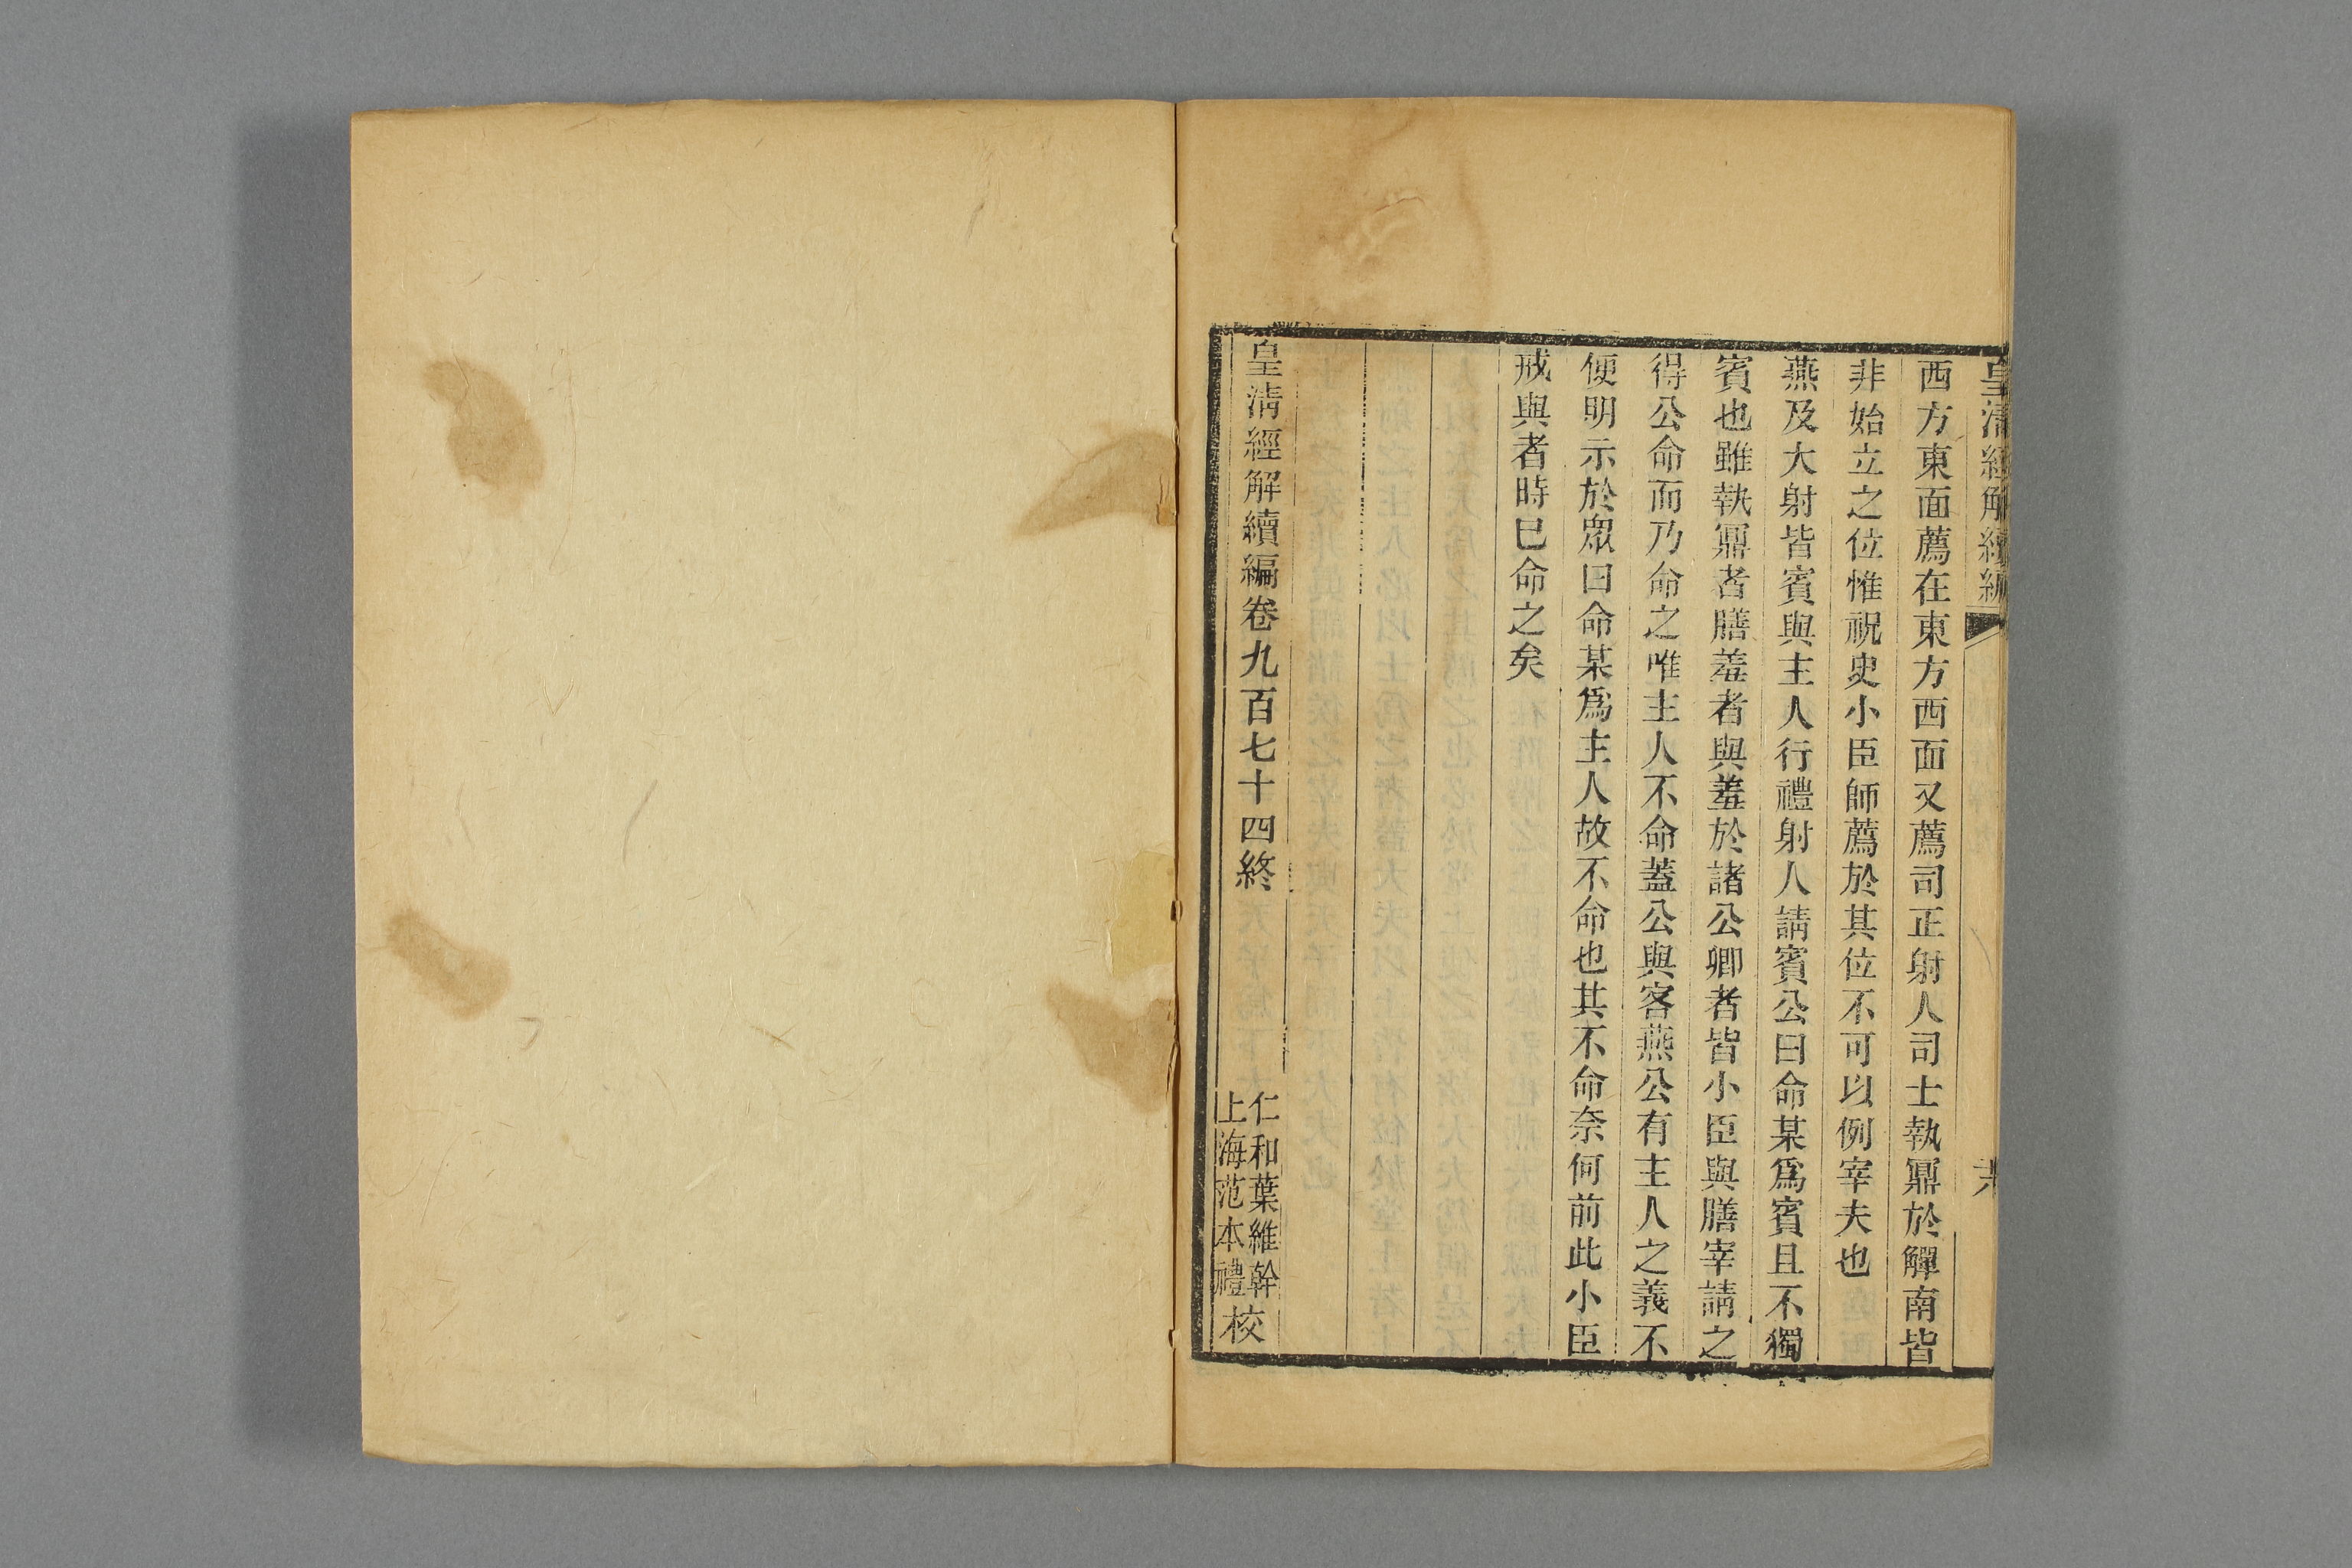 皇清經解續編
西方東面薦在東方西面又薦司正射人司士執鼏於觶南皆
非始立之位惟祝史小臣師薦於其位不可以例宰夫也
燕及大射皆賓與主人行禮射人請賓公曰命某爲賓且不獨
賓也雖執鼏者膳羞者與羞於諸公卿者皆小臣與膳宰請之
得公命而乃命之唯主人不命蓋公與客燕公有主人之義不
便明示於眾曰命某爲主人故不命也其不命奈何前此小臣
戒與者時已命之矣
皇清經解續編卷九百七十四終
仁和葉維幹
上海范本禮
校